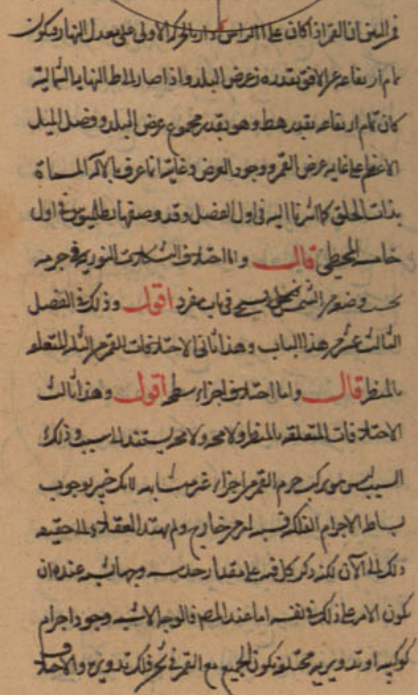 فمن البين ان القمر اذا كان على الراس دار بالحركة الاولى على معدل النهار فيكون
تمام ارتفاعه عن الافق بقدر ه ز عرض البلد واذا صار الى ط النهاية الشمالية
كان تمام ارتفاعه بقدر ه ط وهو بقدر مجموع عرض البلد وفضل الميل
الاعظم على غاية عرض القمر ووجود العرض وغايته انما عرف بالآلة المسماة
بذات الحلق كما اشرنا اليه فى اول الفصل وقد وصفها بطلميوس فى اول
خامسة المجسطى قال واما اختلاف التشكلات النورية فى جرمه
بحسب وضعه من الشمس فيجئ فى باب مفرد اقول وذلك فى الفصل
الثالث عشر من هذا الباب وهذا ثانى الاختلافات القمرية الثلثة المتعلقة
بالمنظر قال واما اختلاف اجزاء سطحه اقول وهذا ثالث
الاختلافات المتعلقة بالمنظر ولا يستند الى سبب فى ذلك
السبب ليس هو تركب جرم القمر من اجزاء غير متشابهة لانك خبير بوجوب
بساطة الاجرام الفلكية فهو لامر خارج ولم يهتد العقلاء الى حقيقة
ذلك الى الآن لكنه ذكر كل فيه على مقدار حدسه وجها يشبه عنده ان
يكون الامر على ذلك فى نفسه اما عند المصنف فالوجه الاشبه وجود اجرام
كوكبية او تدويرية مختلفة يكون الجميع مع القمر فى ثخن فلك تدويره والاختلاف